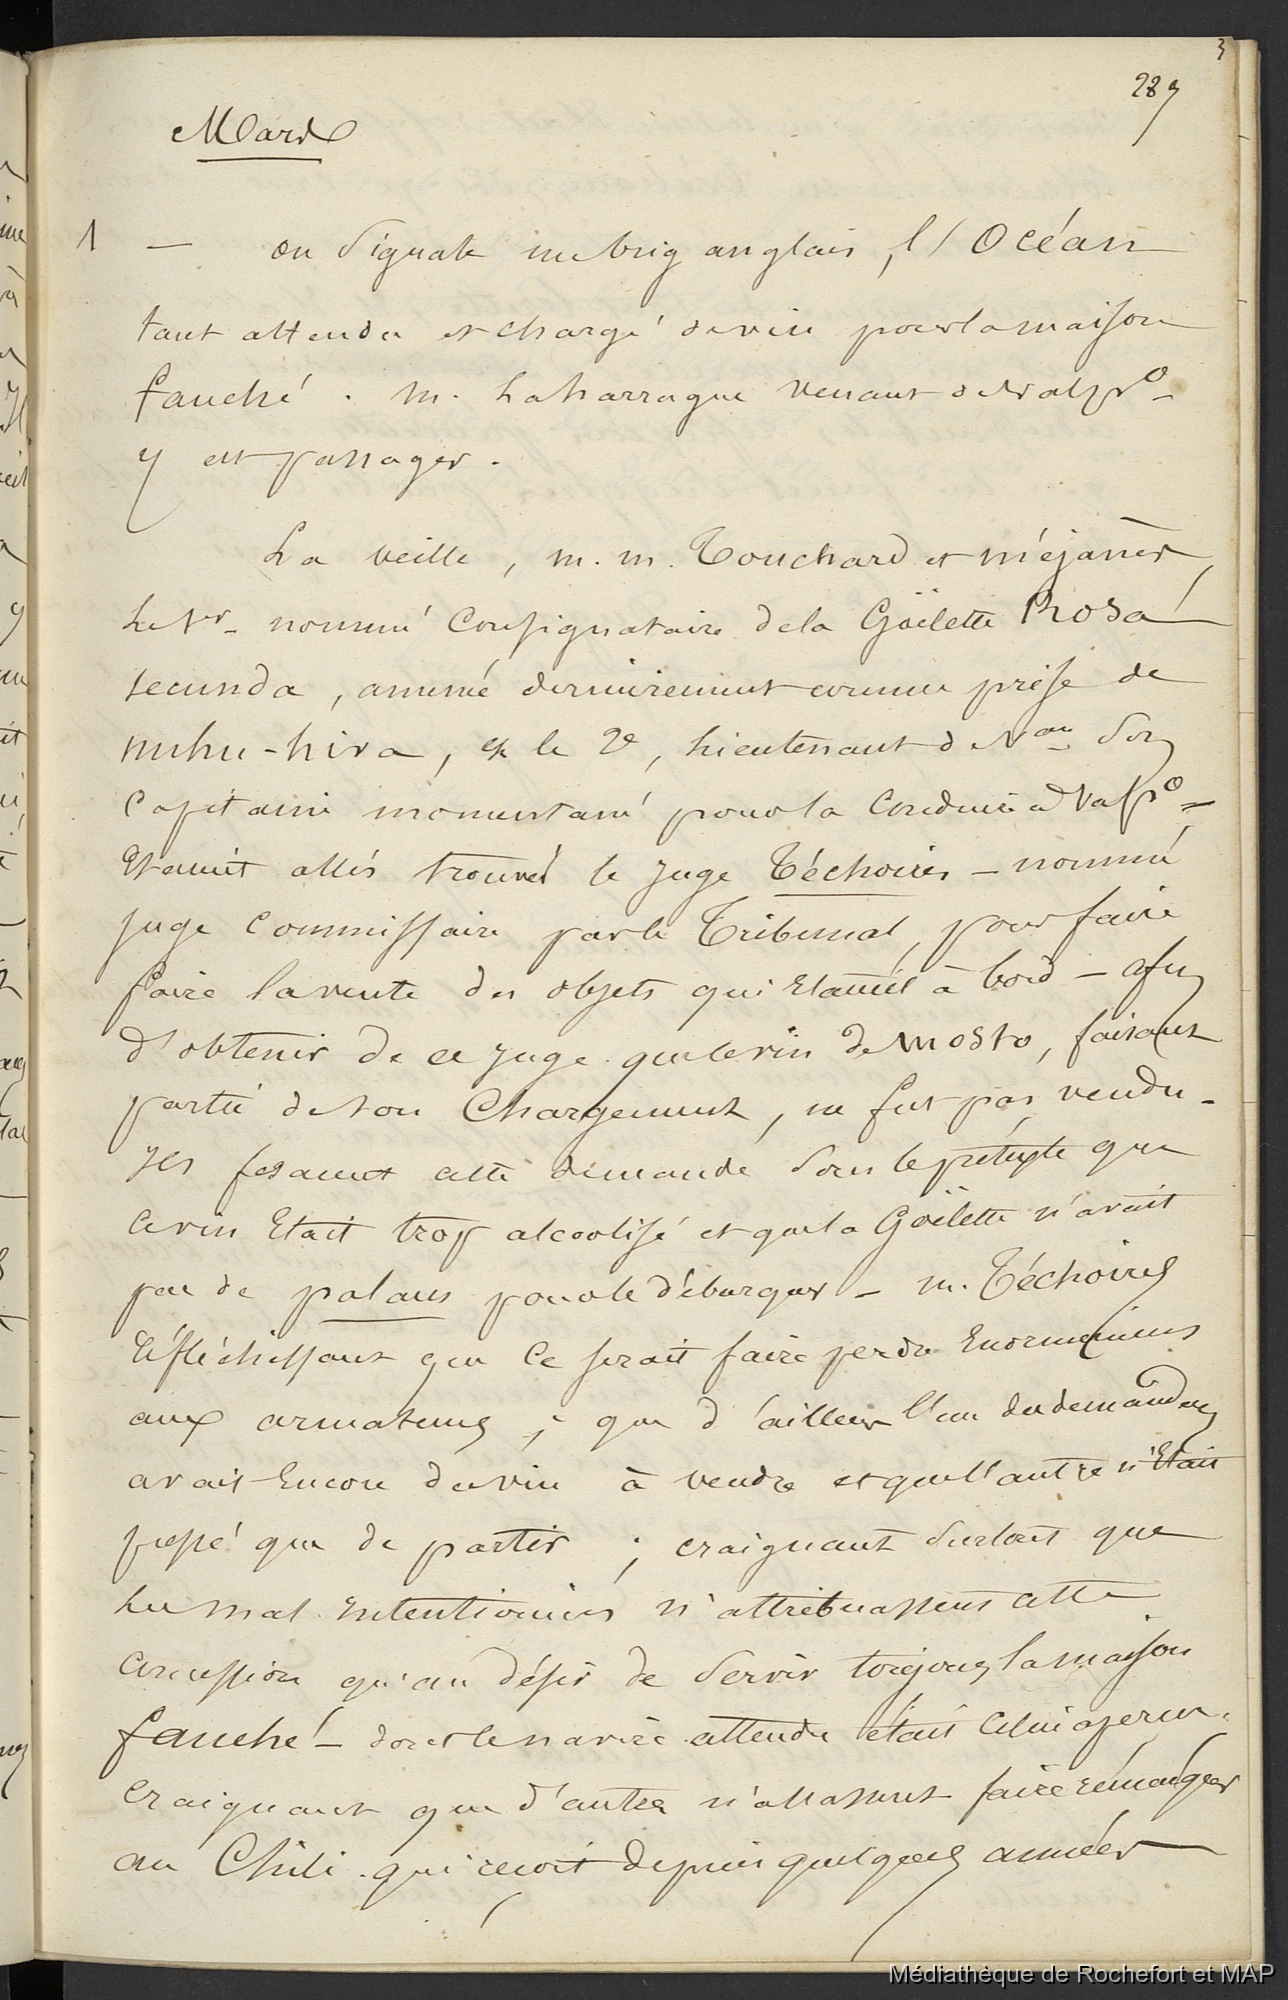 3
289
Mars
1 — on signale un brig anglais, l'Océan
tant attendu et chargé de vin pour la maison
fauché. m. Laharrague venant de Valpo.
y est passager.
La veille, m. m. Touchard et méjanès,
Le 1er nommé Consignataire de la Goëlette Rosa
secunda, amené dernièrement comme prise de
nuhu-hiva, et le 2e, Lieutenant de Vau Son
Capitaine momentané pour la Conduire à Valpo. =
Etaient allés trouver le juge Téchoires – nommé
juge Commissaire par le Tribunal, pour faire
faire la vente des objets qui Etaient à bord – afin
d'obtenir de ce juge que le vin de mosto, faisant
partie de son Chargement, ne fut pas vendu -
Ils fesaient cette demande sous le prétexte que
ce vin Etait trop alcoolisé et que la Goëlette n'avait
pas de palans pour le débarquer – m. Téchoires
Réfléchissant que Ce serait faire perdre Enormément
aux armateurs; que d'ailleurs l'un des demandeurs
avait Encore du vin à vendre et que l'autre n'Etait
pressé que de partir; craignant surtout que
les mal intentionnés n'attribuassent cette
concession qu'au désir de Servir toujours la maison
fauché – dont le navire attendu était Celui aperçu.
craignant que d'autres n'allassent faire remarquer
au Chili qui reçoit depuis quelques années
Médiathèque de Rochefort et MAP